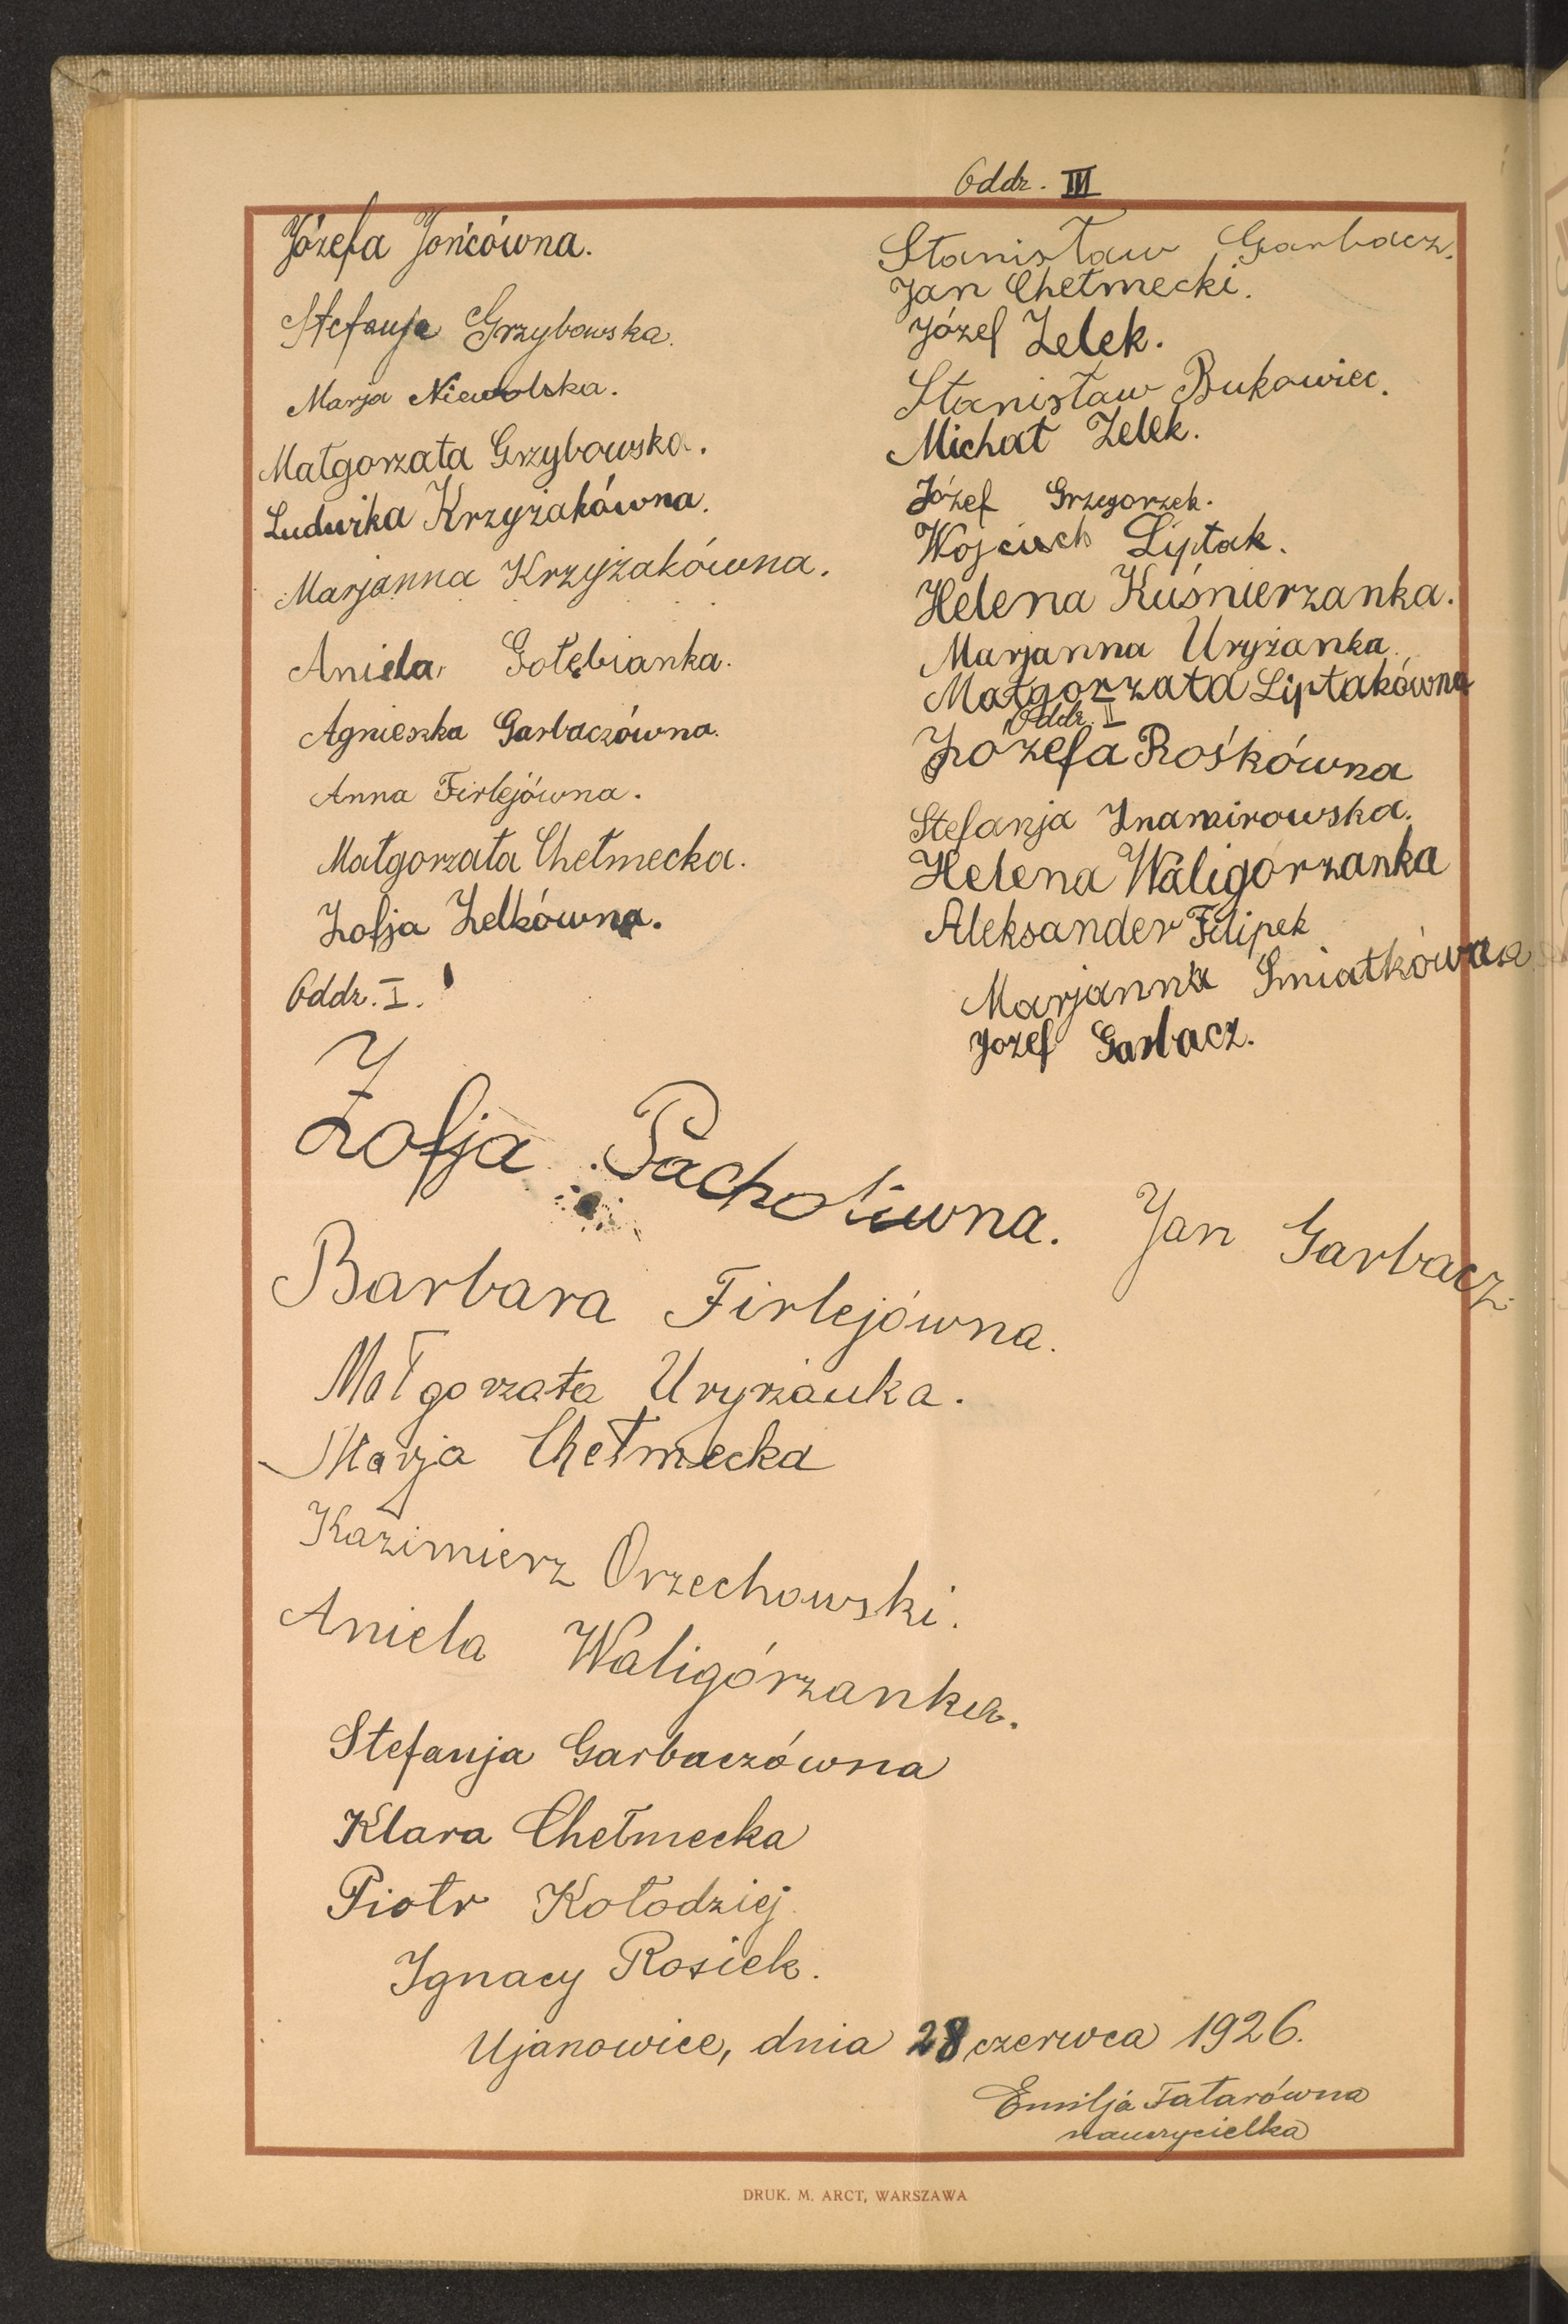 Józefa Jońcówna.
Stefanja Grzybowska.
Marja Niewolska.
Małgorzata Grzybowska.
Ludwika Krzyżakówna.
Marjanna Krzyżakówna.
Aniela Gołębianka.
Agnieszka Garbaczówna.
Anna Firlejówna.
Małgorzata Chełmecka.
Zofja Zelkówna.
Oddz. I.
Zofja Pachołówna.
Barbara Firlejówna.
Małgorzata Uryżanka.
Marja Chełmecka
Kazimierz Orzechowski.
Aniela Waligórzanka.
Stefanja Garbaczówna
Klara Chełmecka
Piotr Kołodziej
Ignacy Rosiek.
Oddz. III
Stanisław Garbacz.
Jan Chełmecki.
Józef Zelek.
Stanisław Bukowiec.
Michał Zelek.
Józef Grzegorzek.
Wojciech Liptak.
Helena Kuśnierzanka.
Marjanna Uryżanka.
Małgorzata Liptakówna
Oddz. II
Józefa Rośkówna
Stefanja Znamirowska.
Helena Waligórzanka
Aleksander Filipek
Marjanna Śmiatkówna
Jozef Garbacz.
Jan Garbacz.
Ujanowice, dnia 28 czerwca 1926.
Emilja Tatarówna
nauczycielka
DRUK. M. ARCT, WARSZAWA